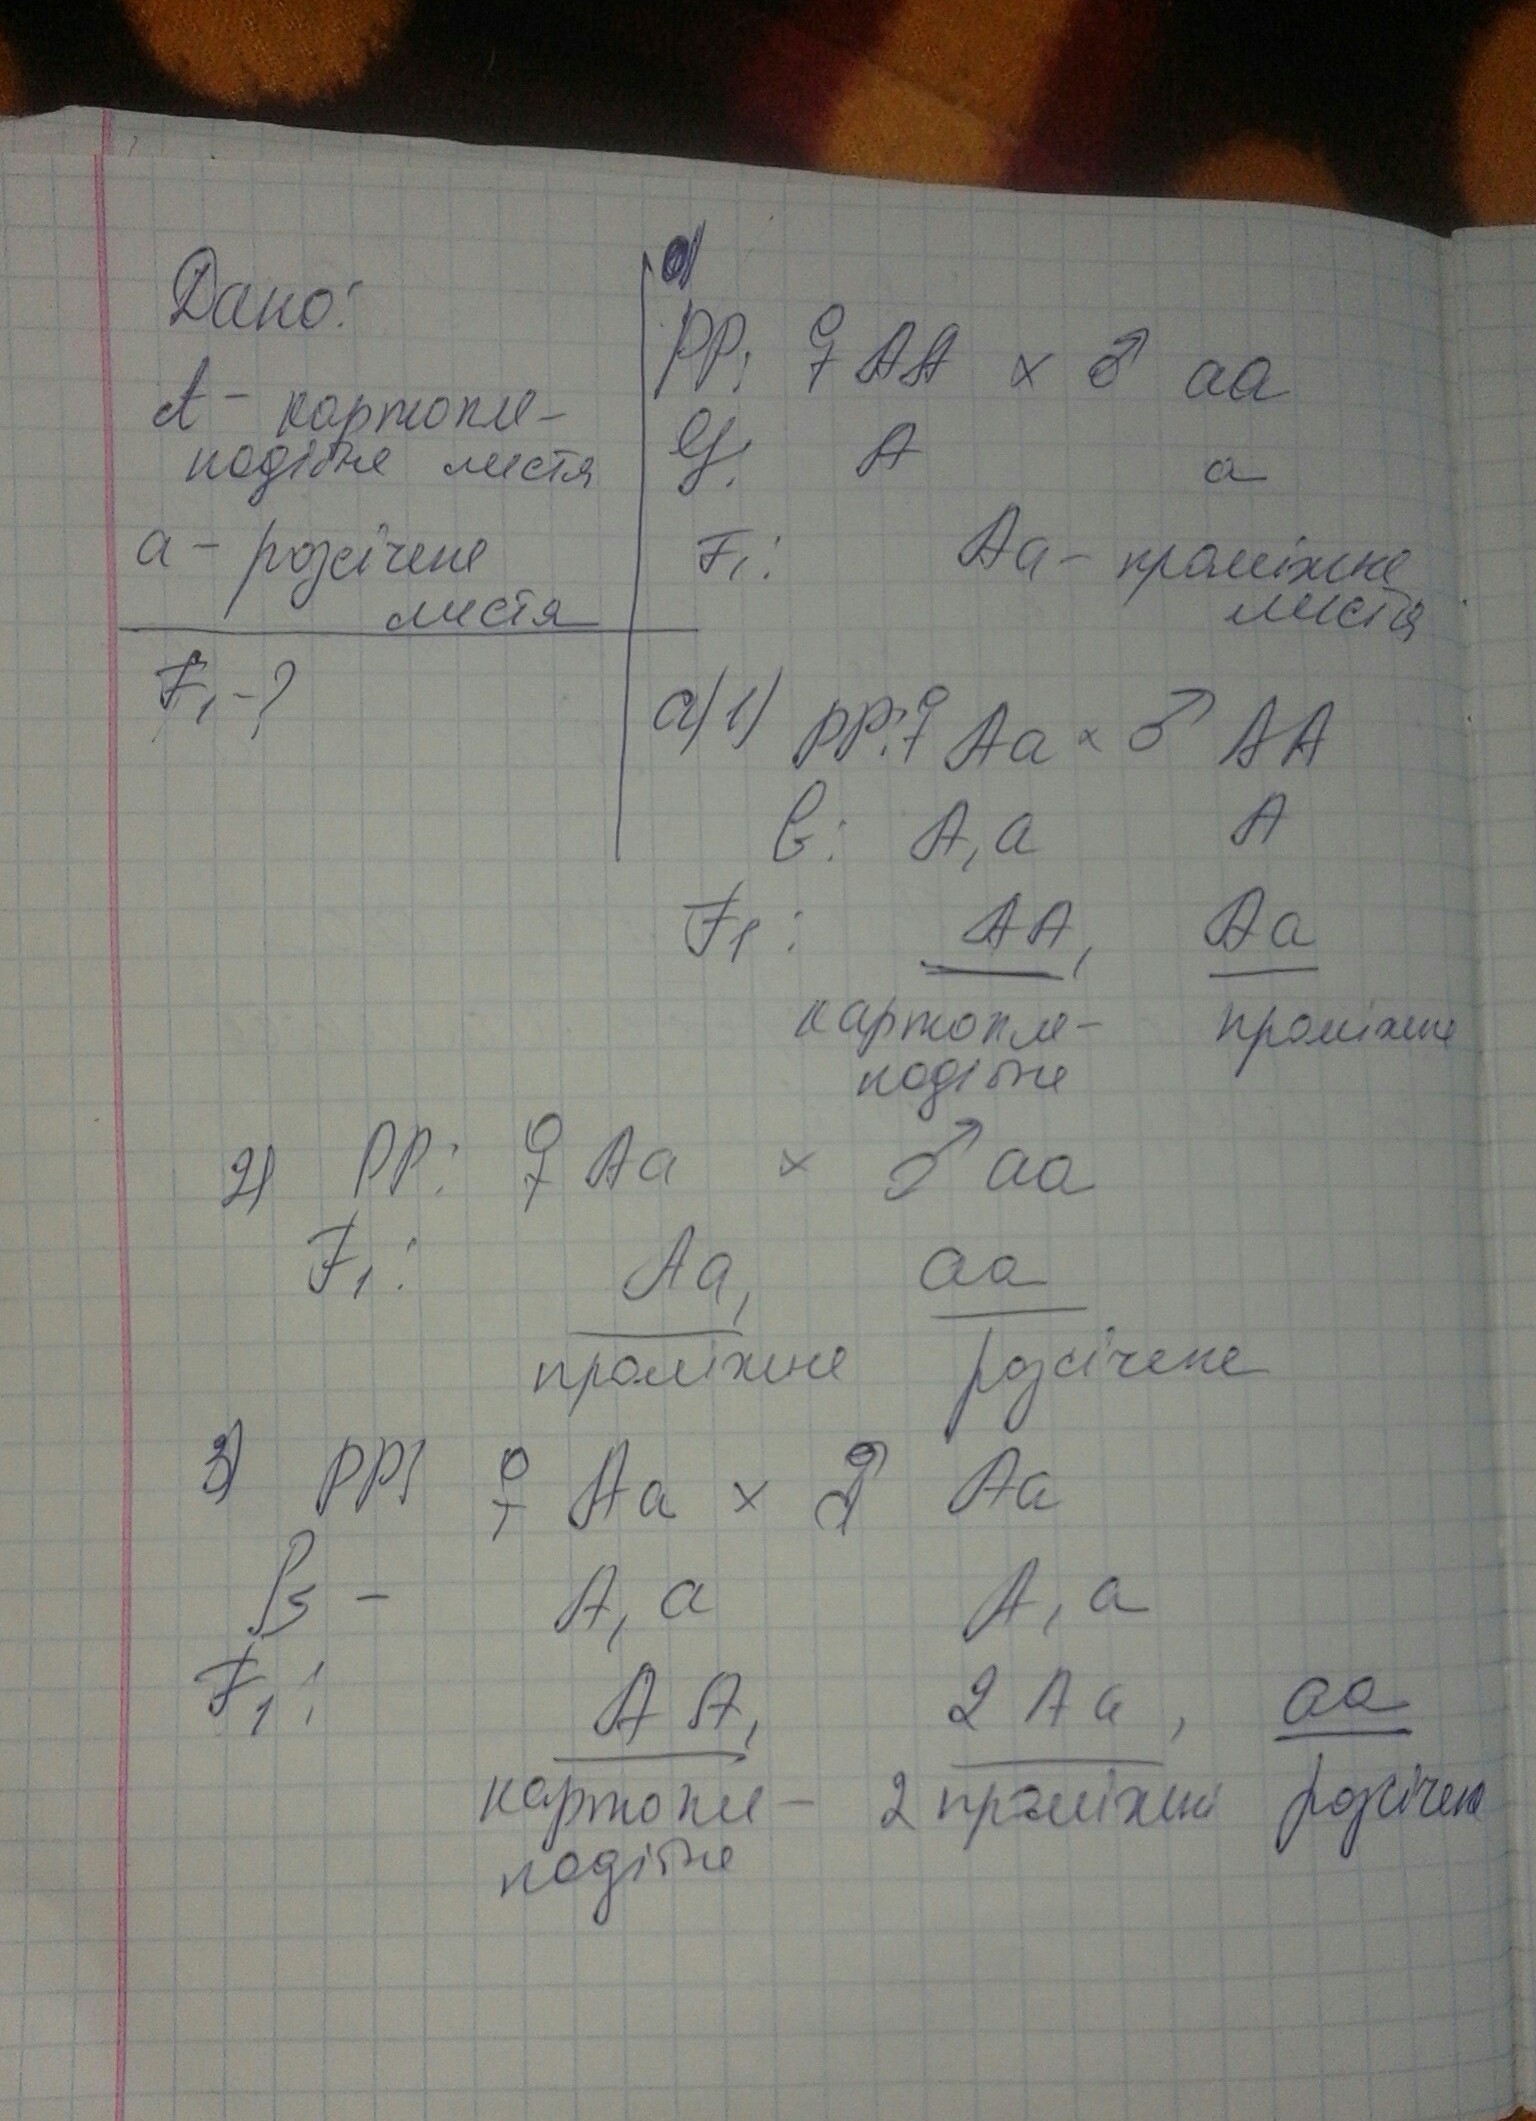 Дано:
А - картопле-
подібне листя
а - розсічене
листя
F₁ - ?
РР: ♀ АА × ♂ аа
G: А а
F₁: Аа - проміжне
листя
а) 1) РР: ♀ Аа × ♂ АА
G: А, а А
F₁: АА, Аа
картопле- проміжне
подібне
2) РР: ♀ Аа × ♂ аа
F₁: Аа, аа
проміжне розсічене
3) РР: ♀ Аа × ♂ Аа
А, а А, а
F₁: АА, 2 Аа, аа
картопле- 2 проміжні розсічене
подібне